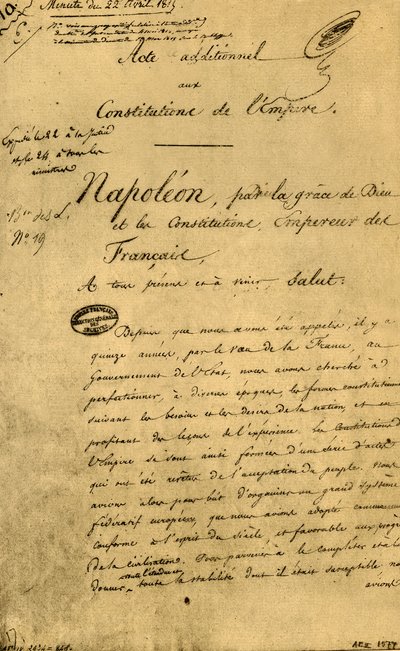 Minute du 22 avril 1815.
Acte additionnel
aux
Constitutions de l'Empire.
Expédié le 22 à la Justice
et le 24, à tous les
ministres
Bin des L.
No 19
Napoléon, par la grâce de Dieu
et les Constitutions, Empereur des
Français,
A tous présens et à venir, Salut:
ARCHIVES
Depuis que nous avons été appelés, il y a
quinze années, par le vœu de la France, au
Gouvernement de l'Etat, nous avons cherché à
perfectionner, à diverses époques, les formes constitutionnelles
suivant les besoins et les desirs de la nation, et en
profitant des leçons de l'expérience. Les Constitutions de
l'Empire se sont ainsi formées d'une série d'actes
qui ont été revêtus de l'acceptation du peuple. Nous
avions alors pour but d'organiser un grand système
fédératif européen, que nous avions adopté comme
conforme à l'esprit du siècle, et favorable aux progrès
de la civilisation. Pour parvenir à le compléter et à lui
donner toute l'étendue et
toute la stabilité dont il était susceptible, nous
avions